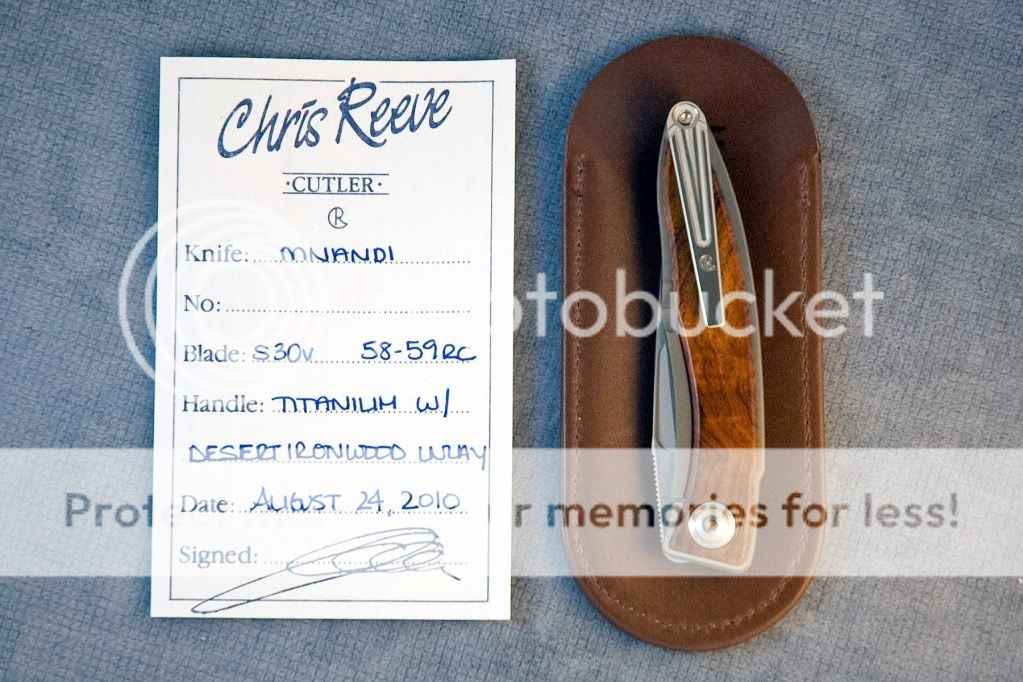 Chris Reeve
·CUTLER·
CR
Knife: MNANDI
No:
Blade: S30V 58-59RC
Handle: TITANIUM W/
DESERT IRONWOOD INLAY
Date: AUGUST 24, 2010
Signed:
photobucket
Protect more of your memories for less!